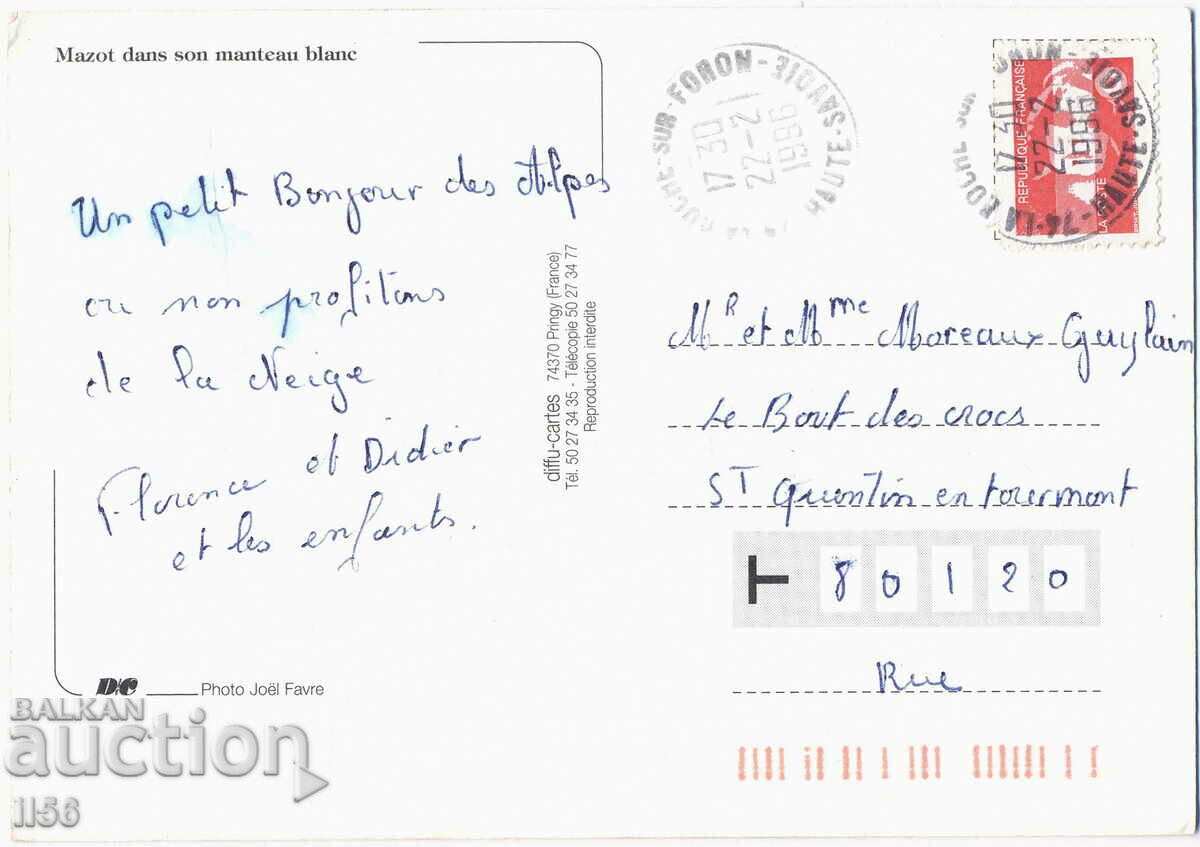 Mazot dans son manteau blanc
Un petit Bonjour des Alpes
ou non profitons
de la Neige
Florence et Didier
et les enfants.
D/C
Photo Joël Favre
diffu-cartes 74370 Pringy (France)
Tél. 50 27 34 35 - Télécopie 50 27 34 77
Reproduction interdite
LA ROCHE-SUR-FORON-
HAUTE-SAVOIE-
17 30
22-2
1996
RÉPUBLIQUE FRANÇAISE
LA POSTE
74-LA ROCHE SUR FORON-
HAUTE-SAVOIE-
17 30
22-2
1996
MR et Mme Moreaux Guylain
Le Bout des crocs
ST Quentin en tourmont
80120
Rue
BALKAN
auction
1156